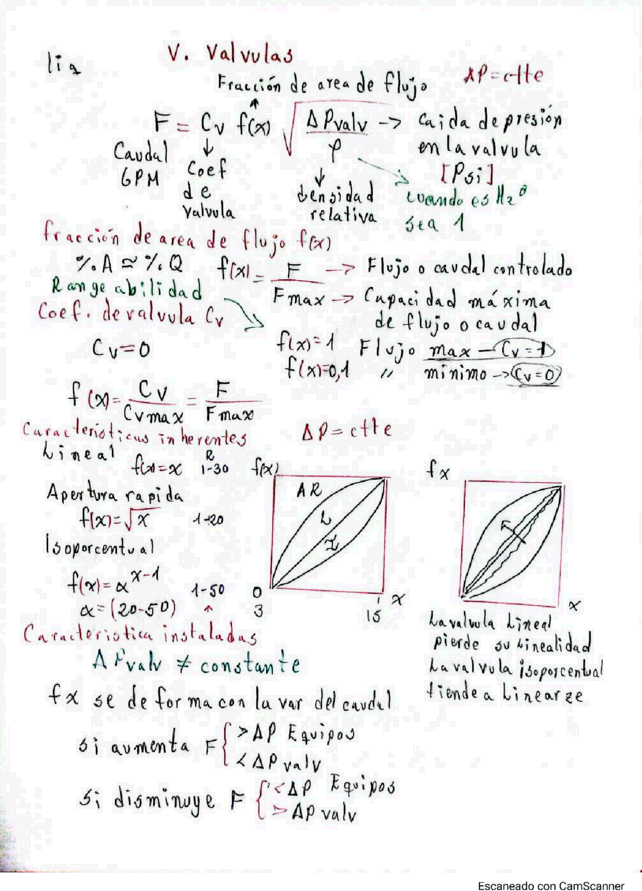 liq
V. Valvulas
Fracción de area de flujo
ΔP=ctte
F = Cv f(x) √(ΔPvalv/ρ) → caida de presión
en la valvula
[Psi]
Caudal
GPM
Coef
de
valvula
densidad
relativa
cuando es H2O
sea 1
fracción de area de flujo f(x)
%A ≃ %Q
f(x) = F/Fmax
→ Flujo o caudal controlado
→ Capacidad máxima
de flujo o caudal
Rangeabilidad
Coef. de valvula Cv
Cv=0
f(x)=1 Flujo max — Cv=1
f(x)=0,1 〃 minimo → Cv=0
f(x)= Cv/Cvmax = F/Fmax
Caracteristicas inherentes
ΔP=ctte
Lineal f(x)=x
R
1-30
Apertura rapida
f(x)=√x 1-20
Isoporcentual
f(x)=α^(x-1) 1-50
α=(20-50)
f(x)
AR
L
I
0
3
15
x
fx
x
La valvula Lineal
pierde su Linealidad
La valvula isoporcentual
tiende a Linearze
Caracteristica instaladas
ΔPvalv ≠ constante
fx se deforma con la var del caudal
si aumenta F { >ΔP Equipos
<ΔP valv
si disminuye F { <ΔP Equipos
>ΔP valv
Escaneado con CamScanner